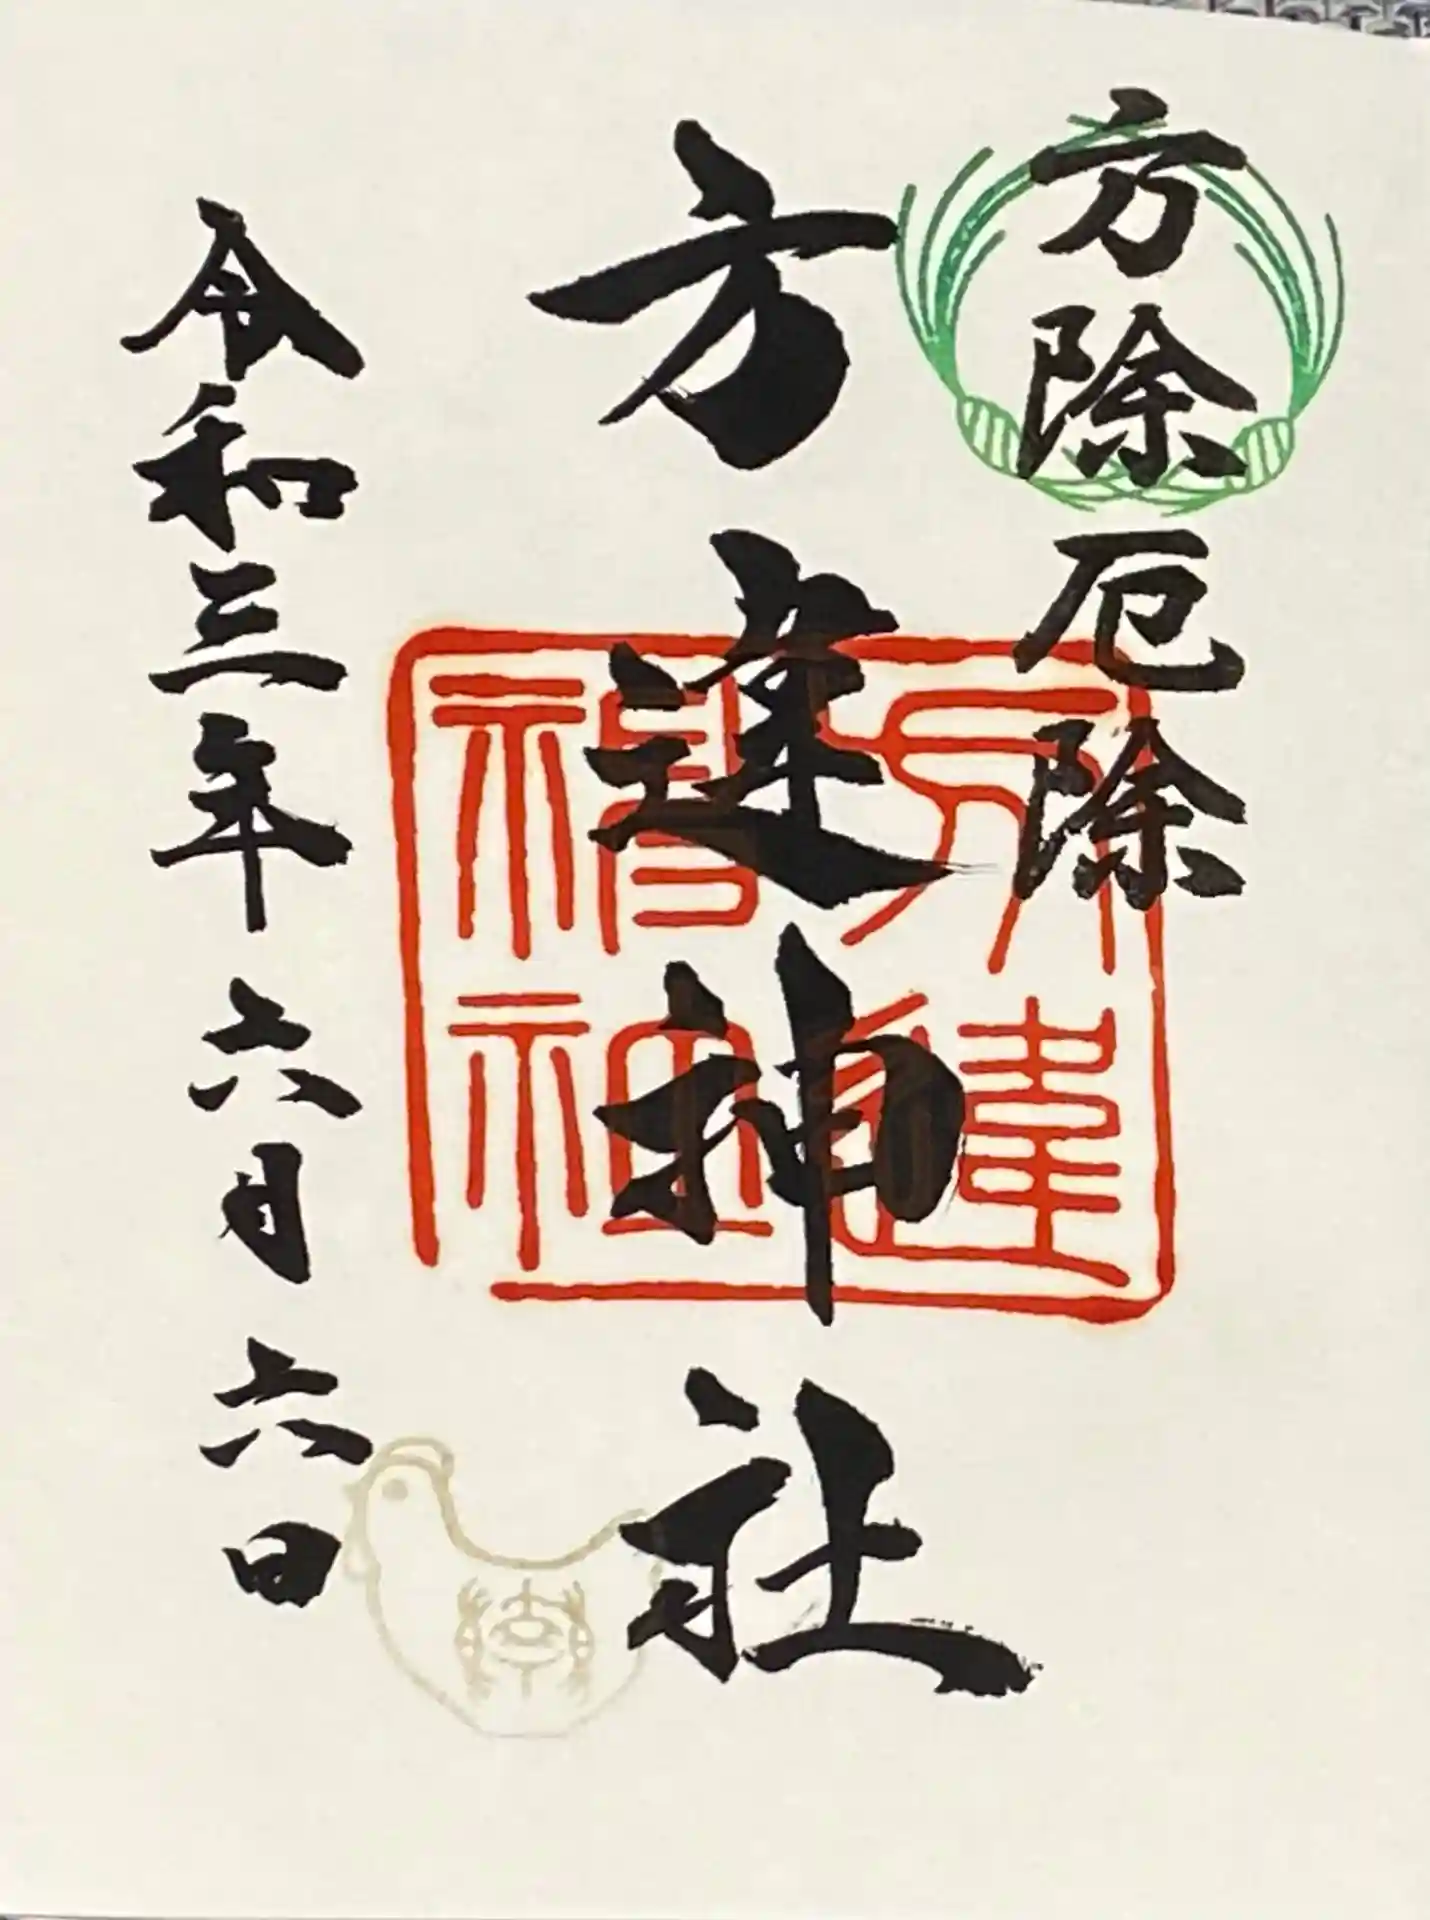 方除
厄除
方違神社
方違神社
令和三年六月六日